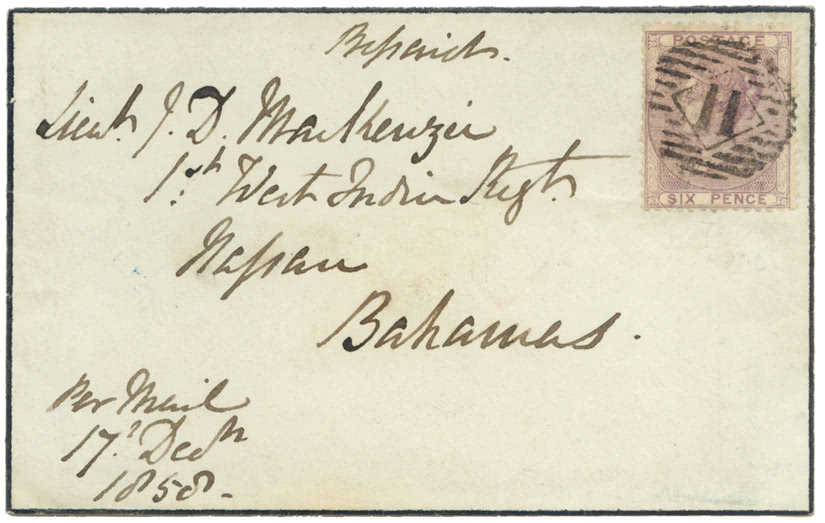 POSTAGE
11
SIX PENCE
Lieut. J. D. MacKenzie
1st West India Regt.
Nassau
Bahamas.
Per Mail
17th Decr
1858.